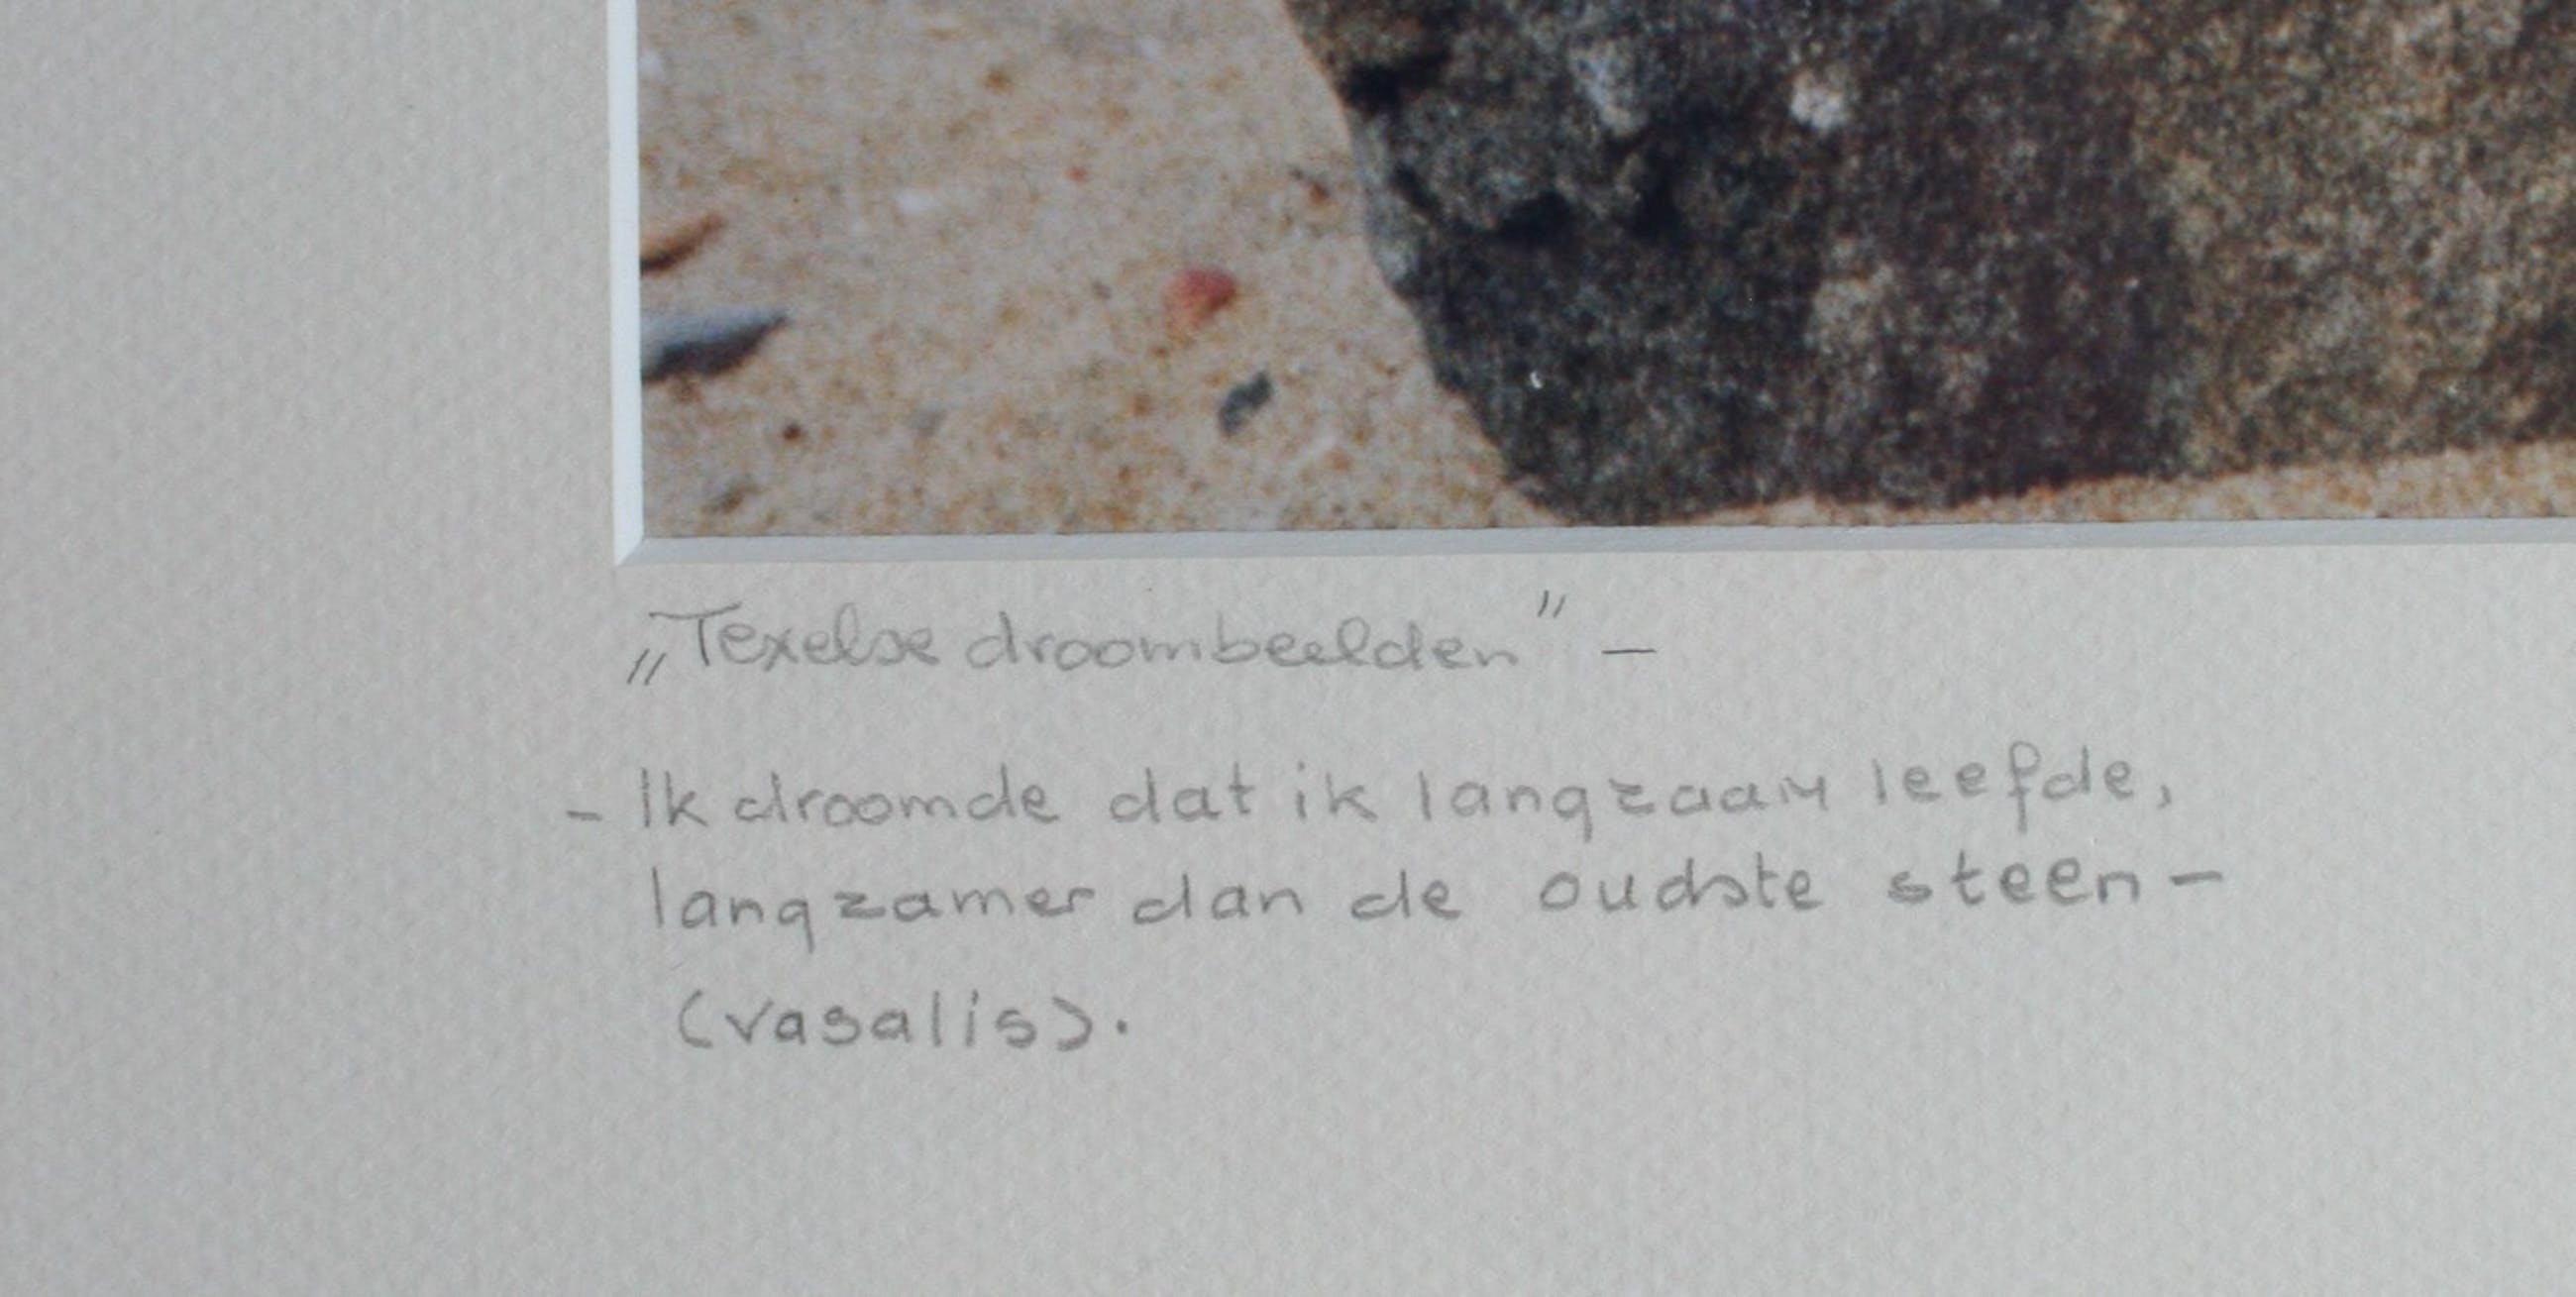 „Texelse droombeelden" –
- Ik droomde dat ik langzaam leefde,
langzamer dan de oudste steen –
(vasalis).